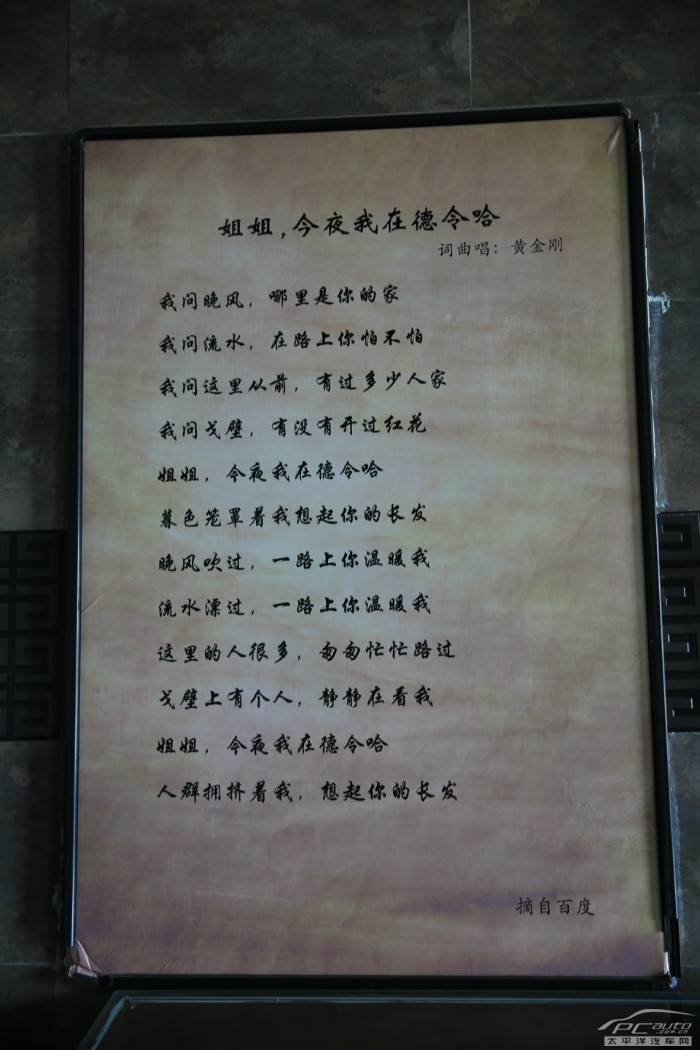 姐姐，今夜我在德令哈
词曲唱：黄金刚
我问晚风，哪里是你的家
我问流水，在路上你怕不怕
我问这里从前，有过多少人家
我问戈壁，有没有开过红花
姐姐，今夜我在德令哈
暮色笼罩着我想起你的长发
晚风吹过，一路上你温暖我
流水漂过，一路上你温暖我
这里的人很多，匆匆忙忙路过
戈壁上有个人，静静在看我
姐姐，今夜我在德令哈
人群拥挤着我，想起你的长发
摘自百度
PCauto
.com.cn
太平洋汽车网